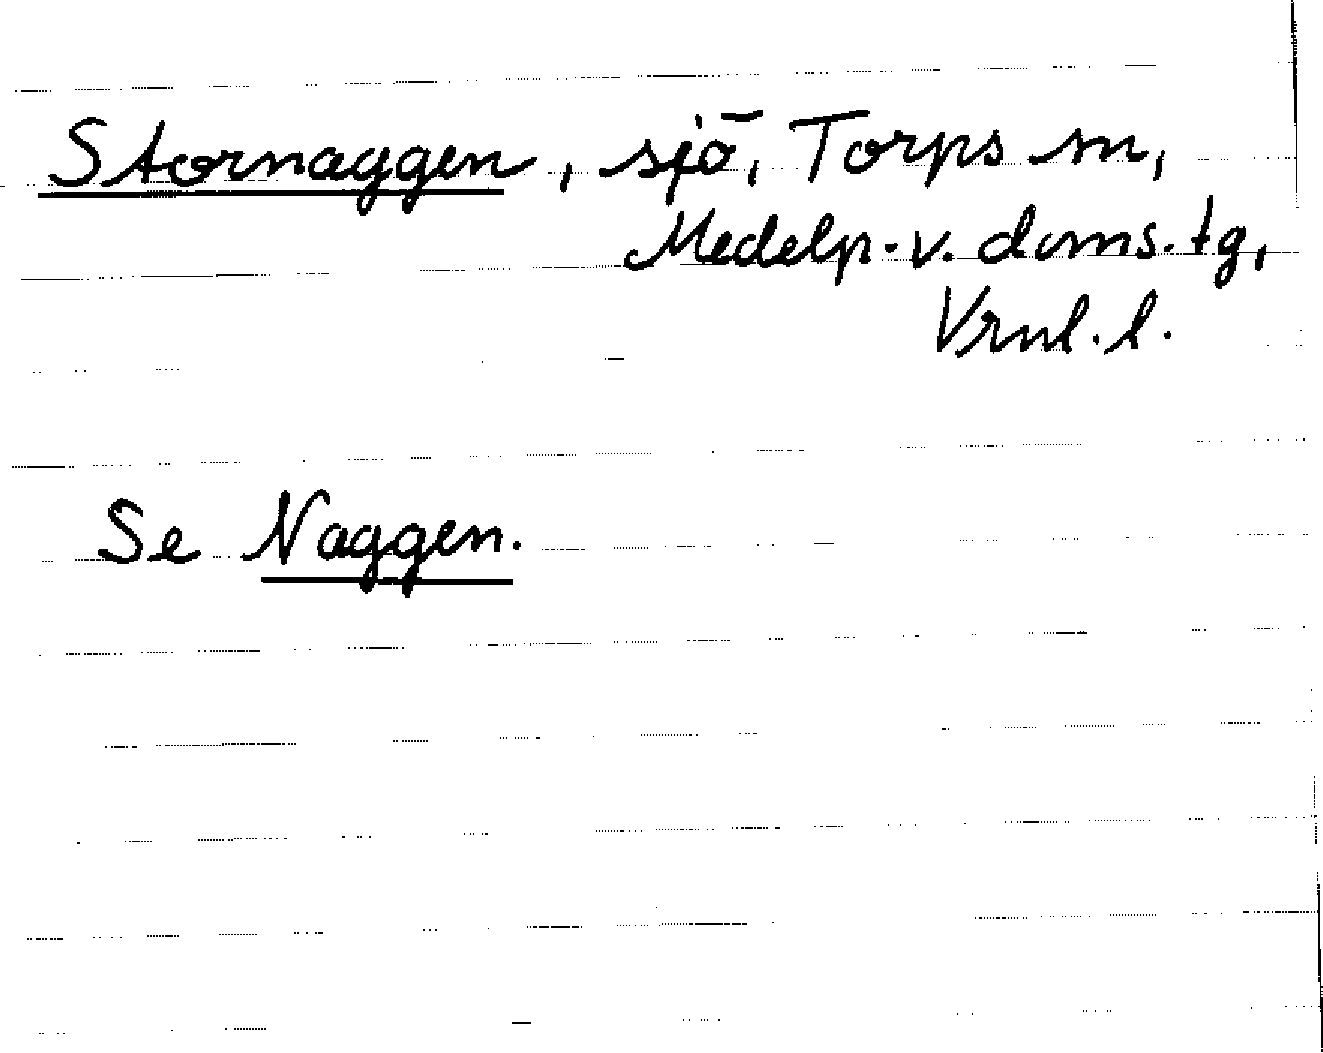 Stornaggen, sjö, Torps sn,
Medelp. v. doms. tg,
Vrnl. l.
Se Naggen.